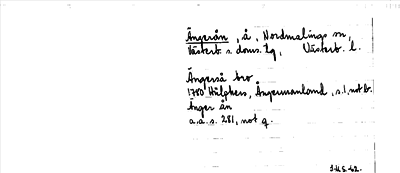 Ängerån, å, Nordmalings sn,
Västerb. s. doms. lg, Västerb. l.
Ängerså bro
1780 Hülphers, Ångermanland, s. 1, not b.
Ånger ån
a.a. s. 281, not q.
J.U.S. -42.